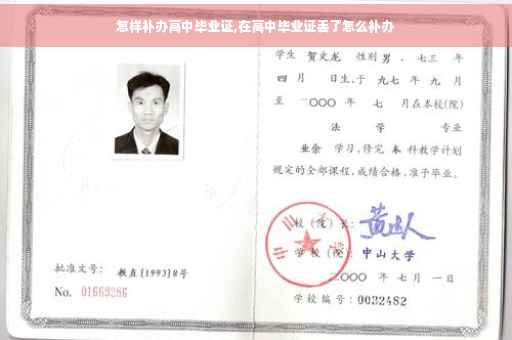 怎样补办高中毕业证,在高中毕业证丢了怎么补办
学生 贺文龙 性别 男 、七三 年
四 月 日生,于 九七 年 九 月
至 二〇〇〇 年 七 月在本校(院)
法 学 专业
业余 学习,修完 本 科教学计划
规定的全部课程,成绩合格,准予毕业。
校(院)长:
学 校(院): 中山大学
二〇〇〇 年 七 月 一 日
学校编号:0032482
批准文号: 教直[1993]8号
No. 01663286